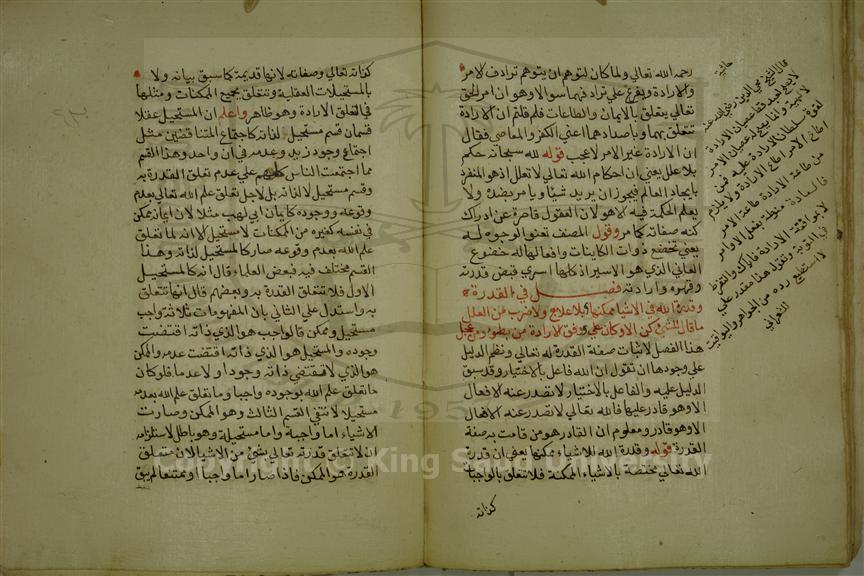 رحمه الله تعالى ولما كان لتوهم ان يتوهم ترادف الامر
والارادة ويفرع على ترادفهما سوالا وهو ان امر الحق
تعالى يتعلق بالايمان والطاعات فلم قلتم ان الارادة
تتعلق بهما وباضدادهما اعني الكفر والمعاصي فقال
ان الارادة غير الامر لا عجب قوله لله سبحانه حكم
بلا علل يعني ان احكام الله تعالى لا تعلل اذ هو المنفرد
بايجاد العالم فيجوز ان يريد شيئا ويامر بضده ولا
يعلم الحكمة فيه الا هو لان العقول قاصرة عن ادراك
كنه صفاته كما مر وقول المصنف تعنو الوجوه له
يعني تخضع ذوات الكاينات وافعالها له خضوع
العاني الذي هو الاسير اذ كلها اسرى قبض قدرته
وقهره وارادته فصل في القدرة
وقدرة الله في الاشيا ممكنها بلا علاج ولا ضرب من العلل
ما قال للشيء كن الا وكان على وفق الارادة من بطوء ومن عجل
هذا الفصل لاثبات صفة القدرة له تعالى ونظم الدليل
على وجودها ان تقول ان الله فاعل بالاختيار وقد سبق
الدليل عليه والفاعل بالاختيار لا تصدر عنه الافعال
الا وهو قادر عليها فالله تعالى لا تصدر عنه الافعال
الا وهو قادر ومعلوم ان القادر هو من قامت به صفة
القدرة قوله وقدرة الله للاشياء ممكنها يعني ان قدرة
الله تعالى مختصة بالاشياء الممكنة فلا تتعلق بالواجبات
كذاته
حاشية
قال الشيخ محيي الدين رضي الله عنه
لا يقع لعبد قط عصيان الارادة
الالهية وانما يقع له عصيان الامر
لقوة سلطان الارادة عليه فمن
اطاع الامر اطاع الارادة ولا يلزم
من طاعة الارادة طاعة الامر
فالسعادة منوطة بفعل الاوامر
لا بموافقة الارادة
لا استطيع رده من الجواهر واليواقيت
للشعراني
كذاته تعالى وصفاته لانها قديمة كما سبق بيانه ولا
بالمستحيلات العقلية وتتعلق بجميع الممكنات ومثلها
في التعلق الارادة وهو ظاهر واعلم ان المستحيل عقلا
قسمان قسم مستحيل لذاته كاجتماع المتناقضين مثل
اجتماع وجود زيد وعدمه في ان واحد وهذا القسم
مما اجتمعت الناس كلهم على عدم تعلق القدرة به
وقسم مستحيل لا لذاته بل لاجل تعلق علم الله تعالى بعدم
وقوعه ووجوده كايمان ابي لهب مثلا لان ايمانه ممكن
في نفسه كغيره من الممكنات لا مستحيل الا انه لما تعلق
علم الله بعدم وقوعه صار كالمستحيل لذاته وهذا
القسم مختلف فيه فبعض العلماء قال انه كالمستحيل
الاول فلا تتعلق القدرة به وبعضهم قال انها تتعلق
به واستدل على الثاني بان المفهومات ثلاثة واجب
مستحيل وممكن فالواجب هو الذي ذاته اقتضت
وجوده والمستحيل هو الذي ذاته اقتضت عدمه والممكن
هو الذي لا تقتضي ذاته وجودا ولا عدما فلو كان
ما تعلق علم الله بوجوده واجبا وما تعلق علم الله بعدمه
مستحيلا لانتفى القسم الثالث وهو الممكن وصارت
الاشياء اما واجبة واما مستحيلة وهو باطل لاستلزامه
ان لا تتعلق قدرته تعالى بشيء من الاشيا لان متعلق
القدرة هو الممكن فاذا صار اما واجبا او ممتنعا لم يبق
1957
King Saud University